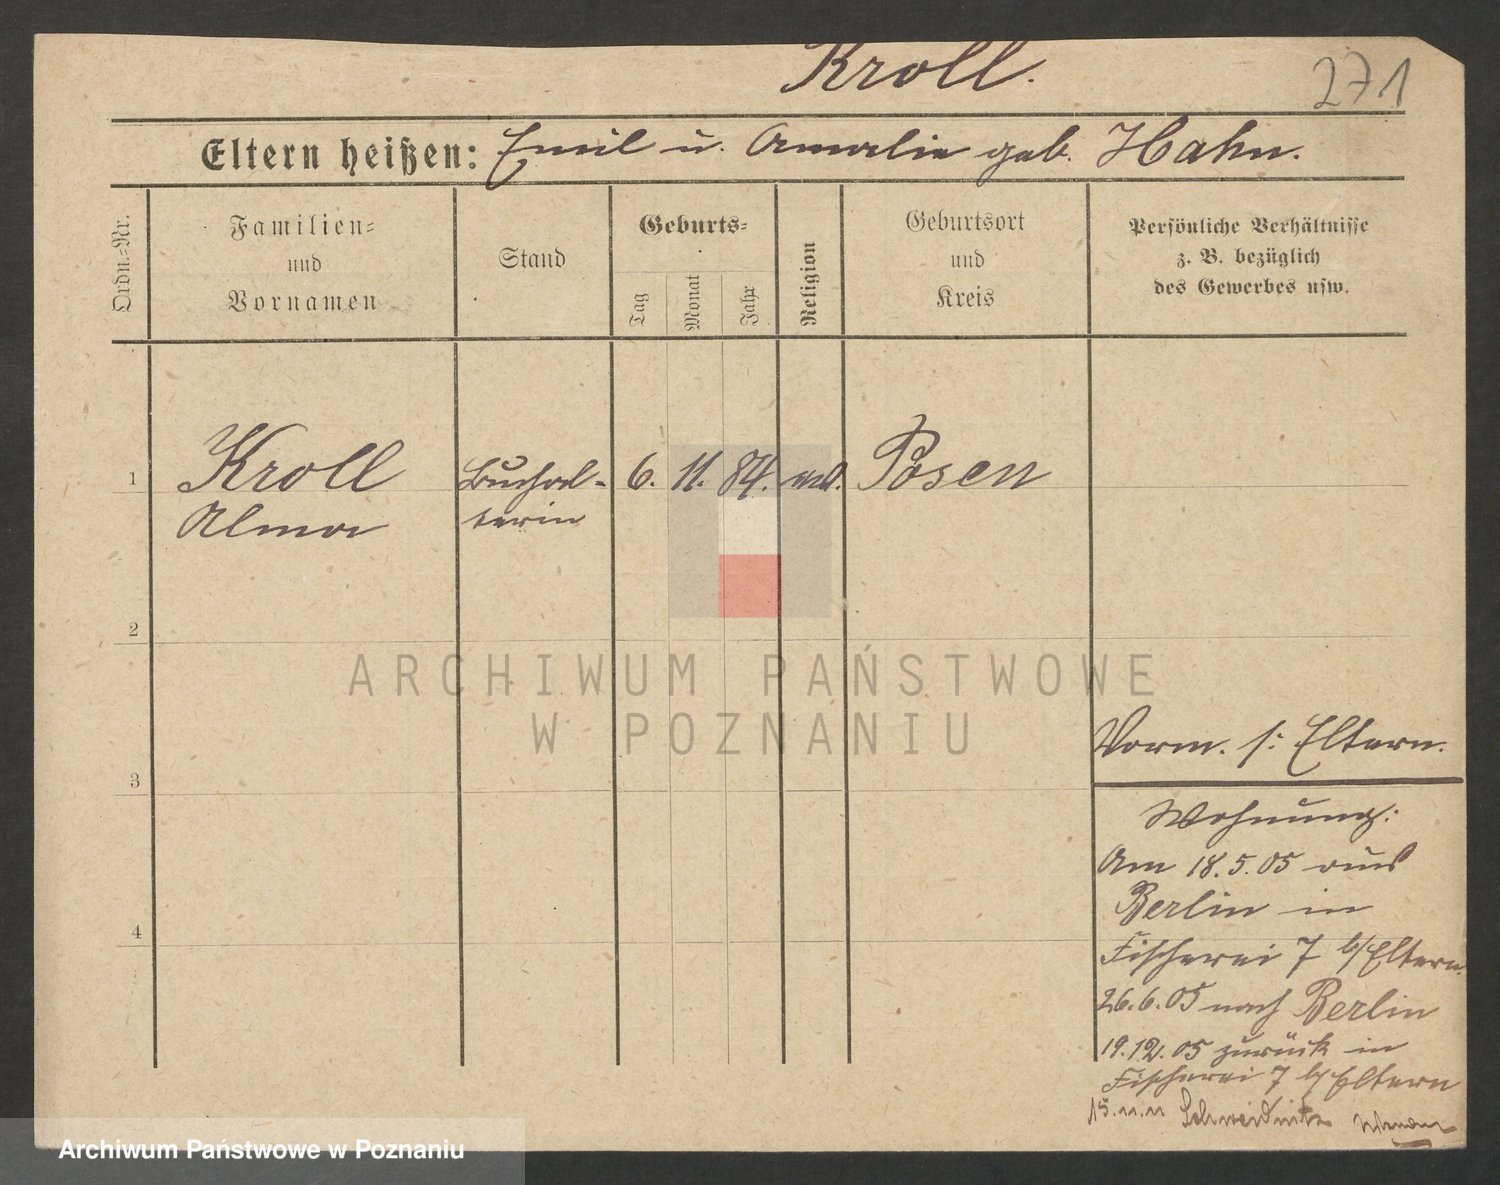 Kroll.
271
Eltern heißen: Emil u. Amalie geb. Hahn.
Ordn.=Nr.
Familien=
und
Vornamen
Stand
Geburts=
Tag
Monat
Jahr
Religion
Geburtsort
und
Kreis
Persönliche Verhältnisse
z. B. bezüglich
des Gewerbes usw.
1 Kroll Buchal- 6. 11. 84. Posen
Alma terin
2
ARCHIWUM PAŃSTWOWE
W POZNANIU
Vorm. s: Eltern.
3
Wohnung:
Am 18.5.05 aus
Berlin in
4
Fischerei 7 b/Eltern.
26.6.05 nach Berlin
19.12.05 zurück in
Fischerei 7 b/Eltern
15.11.11 Schweidnitz
Archiwum Państwowe w Poznaniu